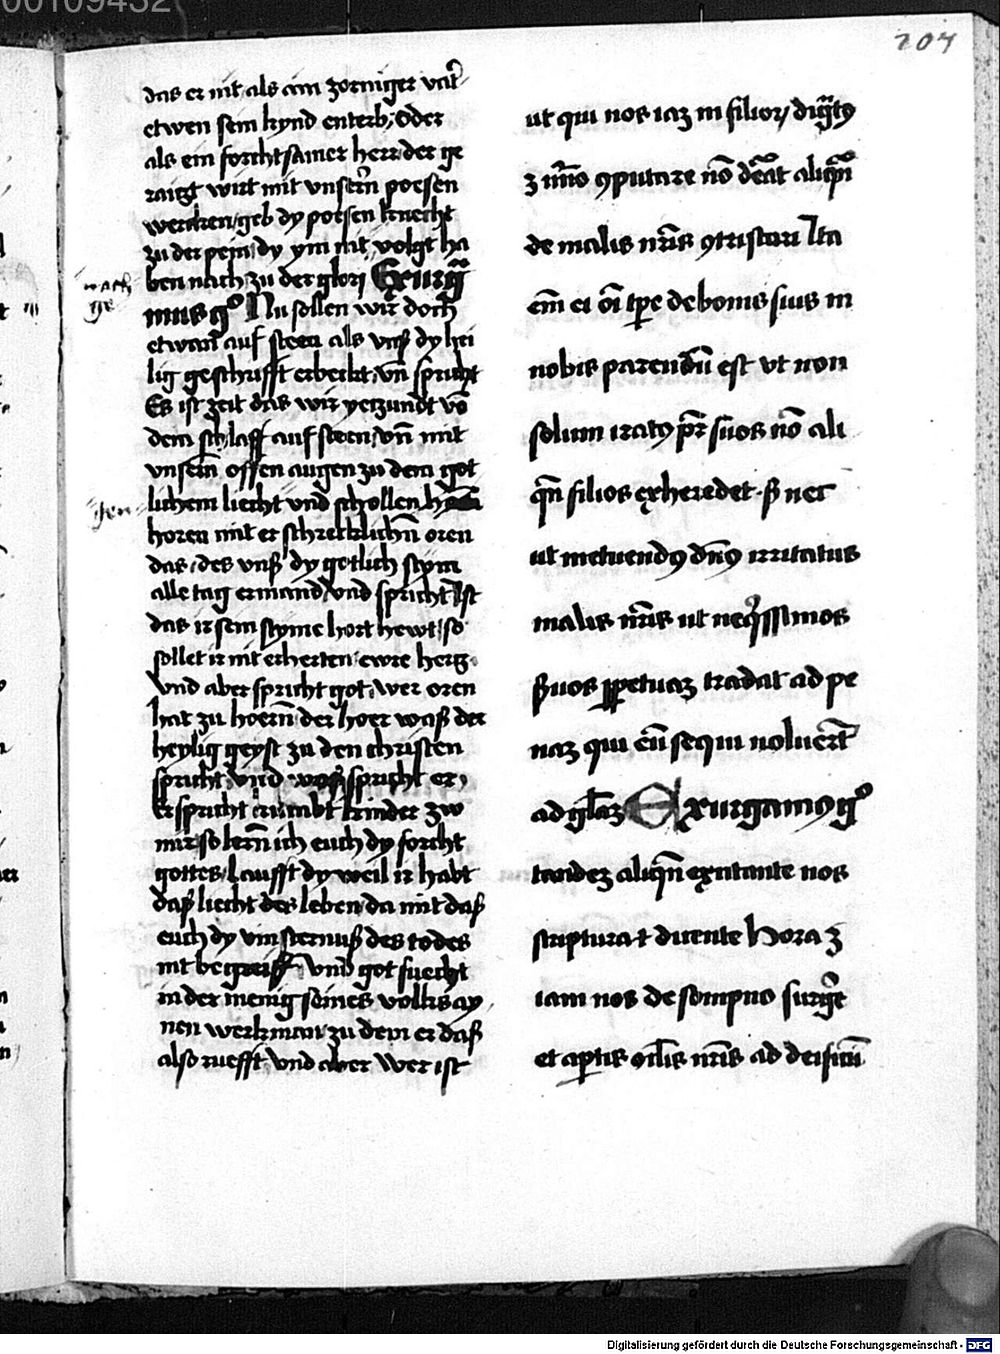 00109432
204
das er nit als ain zorniger vat̄
etwen sein kynd enterb, oder
als ein forchtsamer herr der ge
raigt wirt mit vnser̄n poesen
wercken, geb dy poesen knecht
zu der pein, dy ym nit volgt ha
ben nach zu der glori Exurga
nach
ge
mus g° Nu sollen wir doch
etwan auf steen als vnß dy hei
lig geschrifft erbeckt, vn̄ spricht
Es ist zeit das wir yetzundt vō
dem schlaff auf steen, vn̄ mit
vnsern̄ offen augen zu dem got
lichem liecht vnd schollen
gen
horen mit erschrecklichn̄ oren
das, des vnß dy gotlich stym
alle tag ermand, vnd spricht Ist
das ir sein styme hort hewt, so
sollet ir nit erherten ewre hertz
Vnd aber spricht got, wer oren
hat zu hoern̄ der hoer waß der
heylig geyst zu den christen
spricht Vnd waß spricht er,
Er spricht kumbt kinder zw
mir, so lern̄ ich euch dy forcht
gottes, Laufft dy weil ir habt
daß liecht des leben, da mit daß
euch dy vinsternuß des todes
nit begreiff Vnd got suecht
in der menig seines volks ay
nen werkman, zu dem er daß
also ruefft, vnd aber Wer ist
ut qui nos iaꝫ in filioꝝ dig̅tꝰ
ꝫ nūo ꝯputare nō debeat aliqn̄
de malis nr̄is ꝯtristari Ita
em̄ ei oī tp̄e de bonis suis in
nobis parendū est vt non
solum iratꝰ pr̄ suos nō ali
qn̄ filios exheredet · ß nec
ut metuendꝰ dn̄ꝰ irritatus
malis nr̄is ut neqissimos
ßuos ꝑpetuaꝫ tradat ad pe
naꝫ qui eū sequi noluer̄t
ad gl̄aꝫ Exurgamꝰ g°
tandeꝫ aliqn̄ excitante nos
scriptura ⁊ dicente Hora ꝫ
iam nos de sompno surge
et aptis oculis nr̄is ad deificū
Digitalisierung gefördert durch die Deutsche Forschungsgemeinschaft - DFG